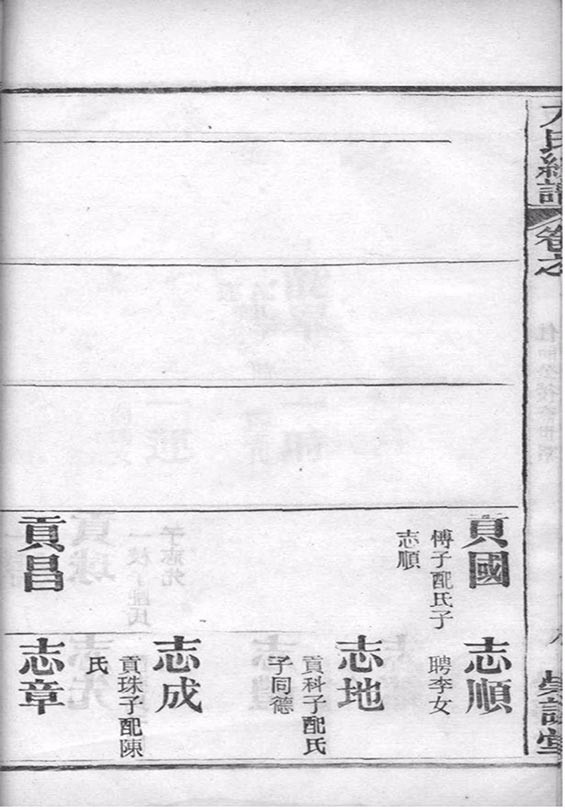 氏經譜
卷之
貢國
傅子配氏子
志順
貢昌
志順
聘李女
志地
貢科子配氏
子同德
志成
貢珠子配陳
氏
志章